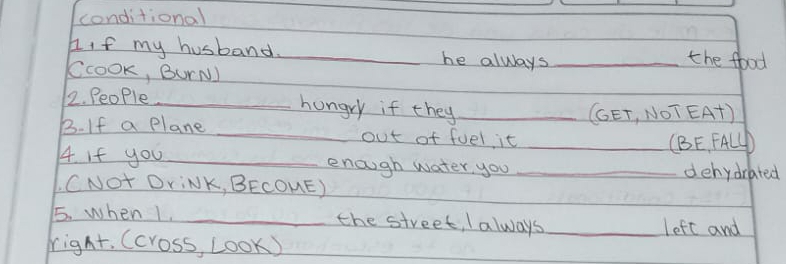 conditional
1. if my husband. ________ he always ________ the food
(COOK, BURN)
2. People ________ hungry if they ________ (GET, NOT EAT)
3. If a Plane ________ out of fuel, it ________ (BE, FALL)
4 if you ________ enough water, you ________ dehydrated
.(NOT DRINK, BECOME)
5. when I. ________ the street, I always ________ left and
right. (CROSS, LOOK)